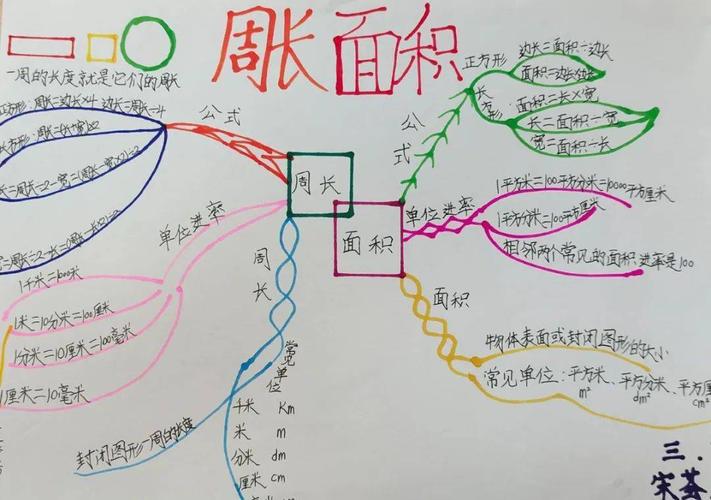 周长 面积
一周的长度就是它们的周长
公式
正方形：周长=边长×4 边长=周长÷4
周长
单位进率
1千米=1000米
1米=10分米=100厘米
1分米=10厘米=100毫米
1厘米=10毫米
周长
封闭图形一周的长度
常见单位
千米 Km
米 m
分米 dm
厘米 cm
面积
公式
正方形
边长=面积÷边长
面积=边长×边长
长方形
面积=长×宽
长=面积÷宽
宽=面积÷长
单位进率
1平方米=100平方分米=10000平方厘米
1平方分米=100平方厘米
相邻两个常见的面积进率是100
面积
物体表面或封闭图形的大小
常见单位：平方米、平方分米、平方厘
m² dm² cm²
三.